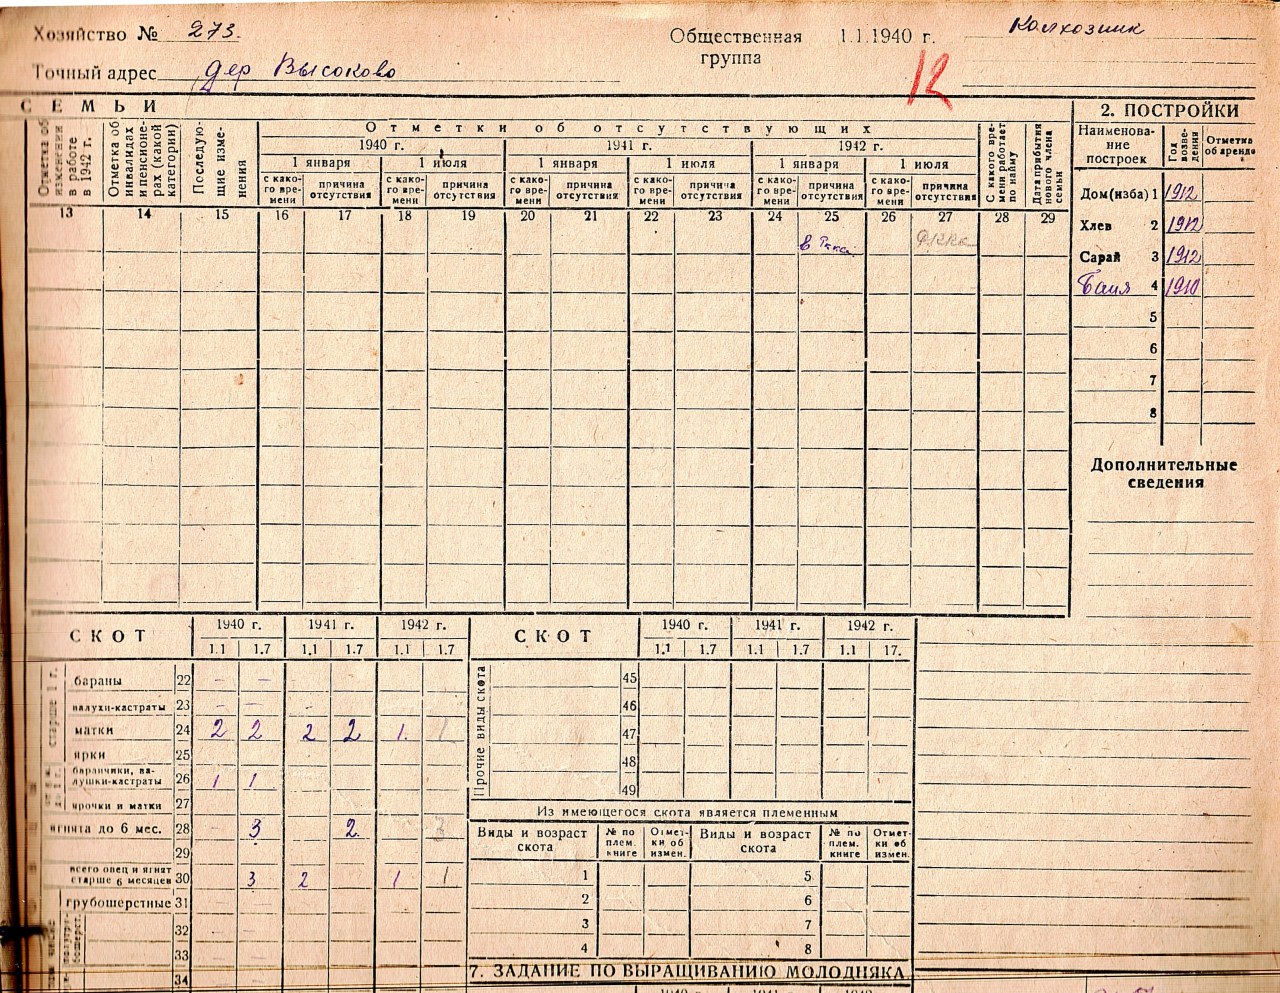 Хозяйство № 273. Общественная группа 1.1.1940 г. Колхозник
Точный адрес дер Высоково
12
СЕМЬИ
Отметка об изменении в работе в 1942 г.
Отметка об инвалидах и пенсионерах (какой категории)
Последующие изменения
Отметки об отсутствующих
1940 г. 1941 г. 1942 г.
1 января 1 июля 1 января 1 июля 1 января 1 июля
с како-го вре-мени причина отсутствия с како-го вре-мени причина отсутствия с како-го вре-мени причина отсутствия с како-го вре-мени причина отсутствия с како-го вре-мени причина отсутствия с како-го вре-мени причина отсутствия
С какого вре-мени работает по найму
Дата прибытия нового члена семьи
13 14 15 16 17 18 19 20 21 22 23 24 25 26 27 28 29
в Р РККА
2. ПОСТРОЙКИ
Наименова-ние построек Год возве-дения Отметка об аренде
Дом(изба) 1 1912
Хлев 2 1912
Сарай 3 1912
Баня 4 1910
5
6
7
8
Дополнительные
сведения
СКОТ 1940 г. 1941 г. 1942 г.
1.1 1.7 1.1 1.7 1.1 1.7
старше 1 г.
бараны 22 – –
валухи-кастраты 23 – – –
матки 24 2 2 2 2 1. 1
ярки 25
баранчики, ва-лушки-кастраты 26 1 1
ярочки и матки 27
ягнята до 6 мес. 28 3 2. 3
29
всего овец и ягнят старше 6 месяцев 30 3 2 1 1
грубошерстные 31
32
33
34
СКОТ 1940 г. 1941 г. 1942 г.
1.1 1.7 1.1 1.7 1.1 17.
Прочие виды скота
45
46
47
48
49
Из имеющегося скота является племенным
Виды и возраст скота № по плем. книге Отмет-ки об измен. Виды и возраст скота № по плем. книге Отмет-ки об измен.
1 5
2 6
3 7
4 8
7. ЗАДАНИЕ ПО ВЫРАЩИВАНИЮ МОЛОДНЯКА
1940 1941 1942